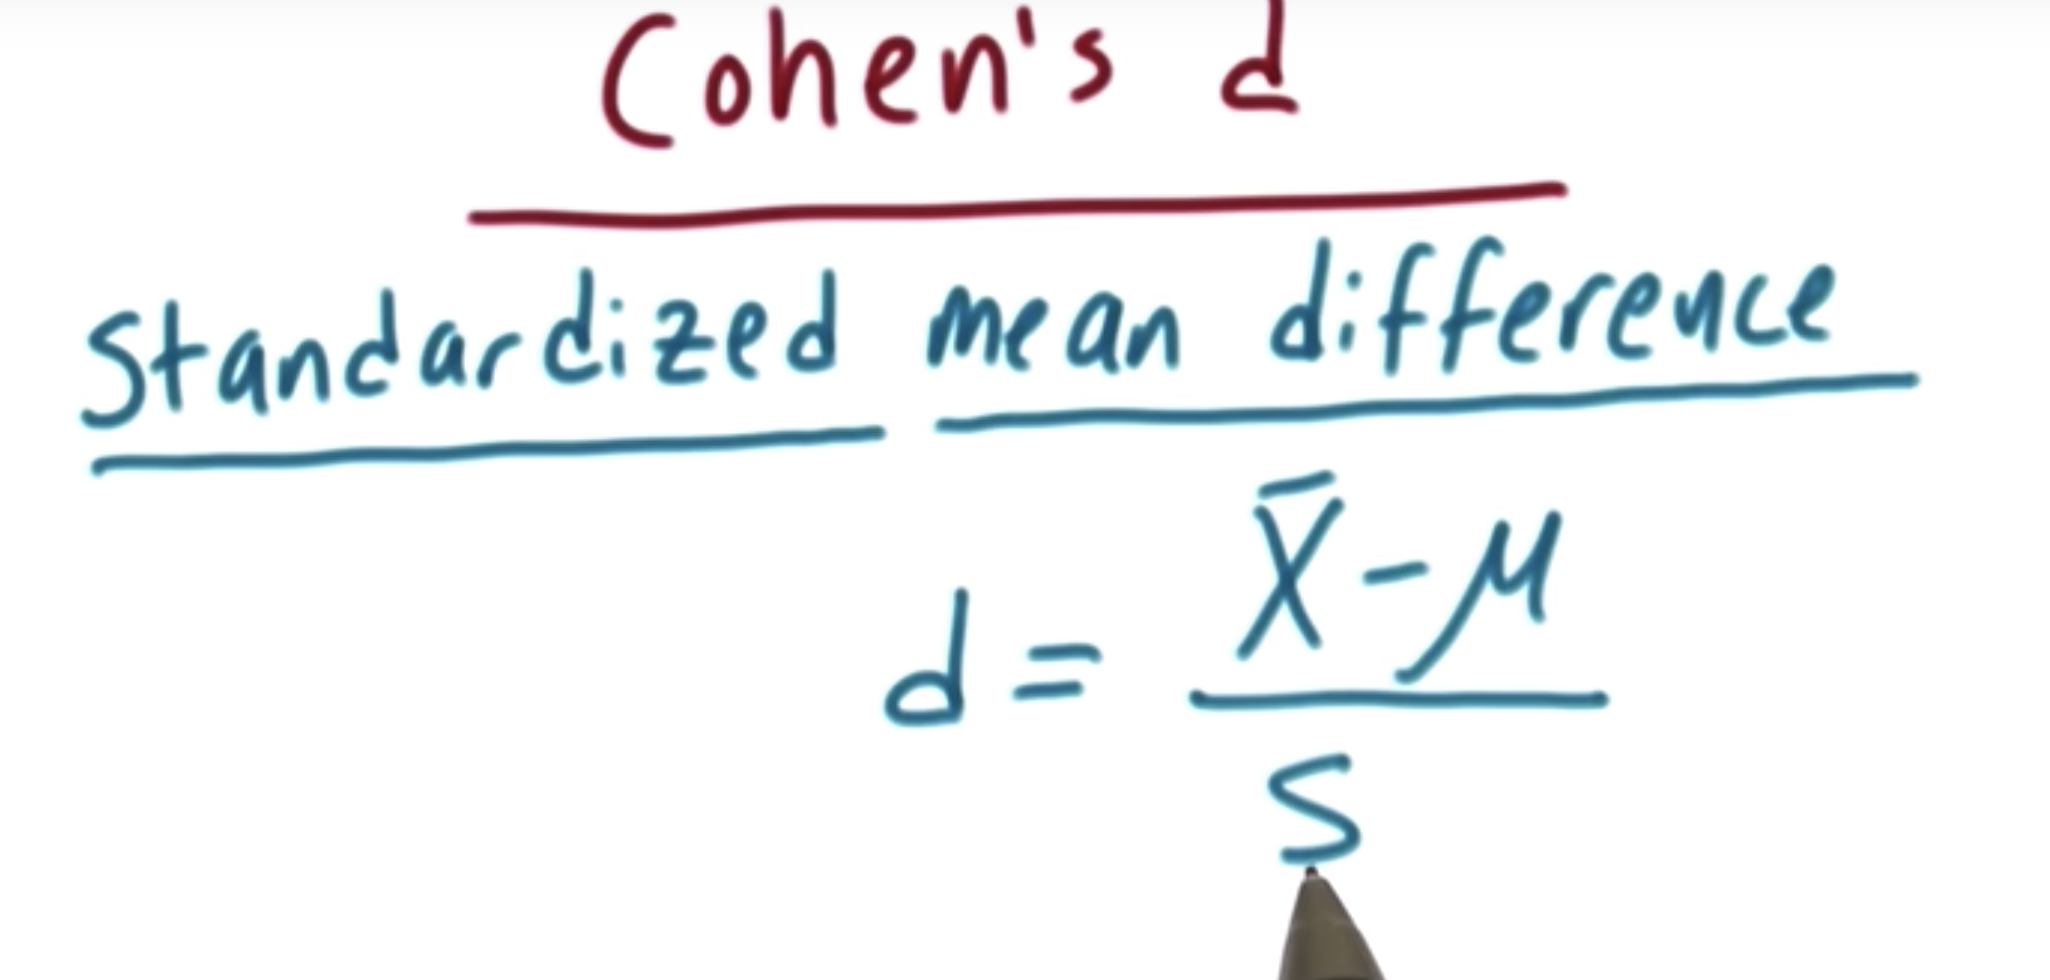 Cohen's d
Standardized mean difference
d = x̄ - μ
s